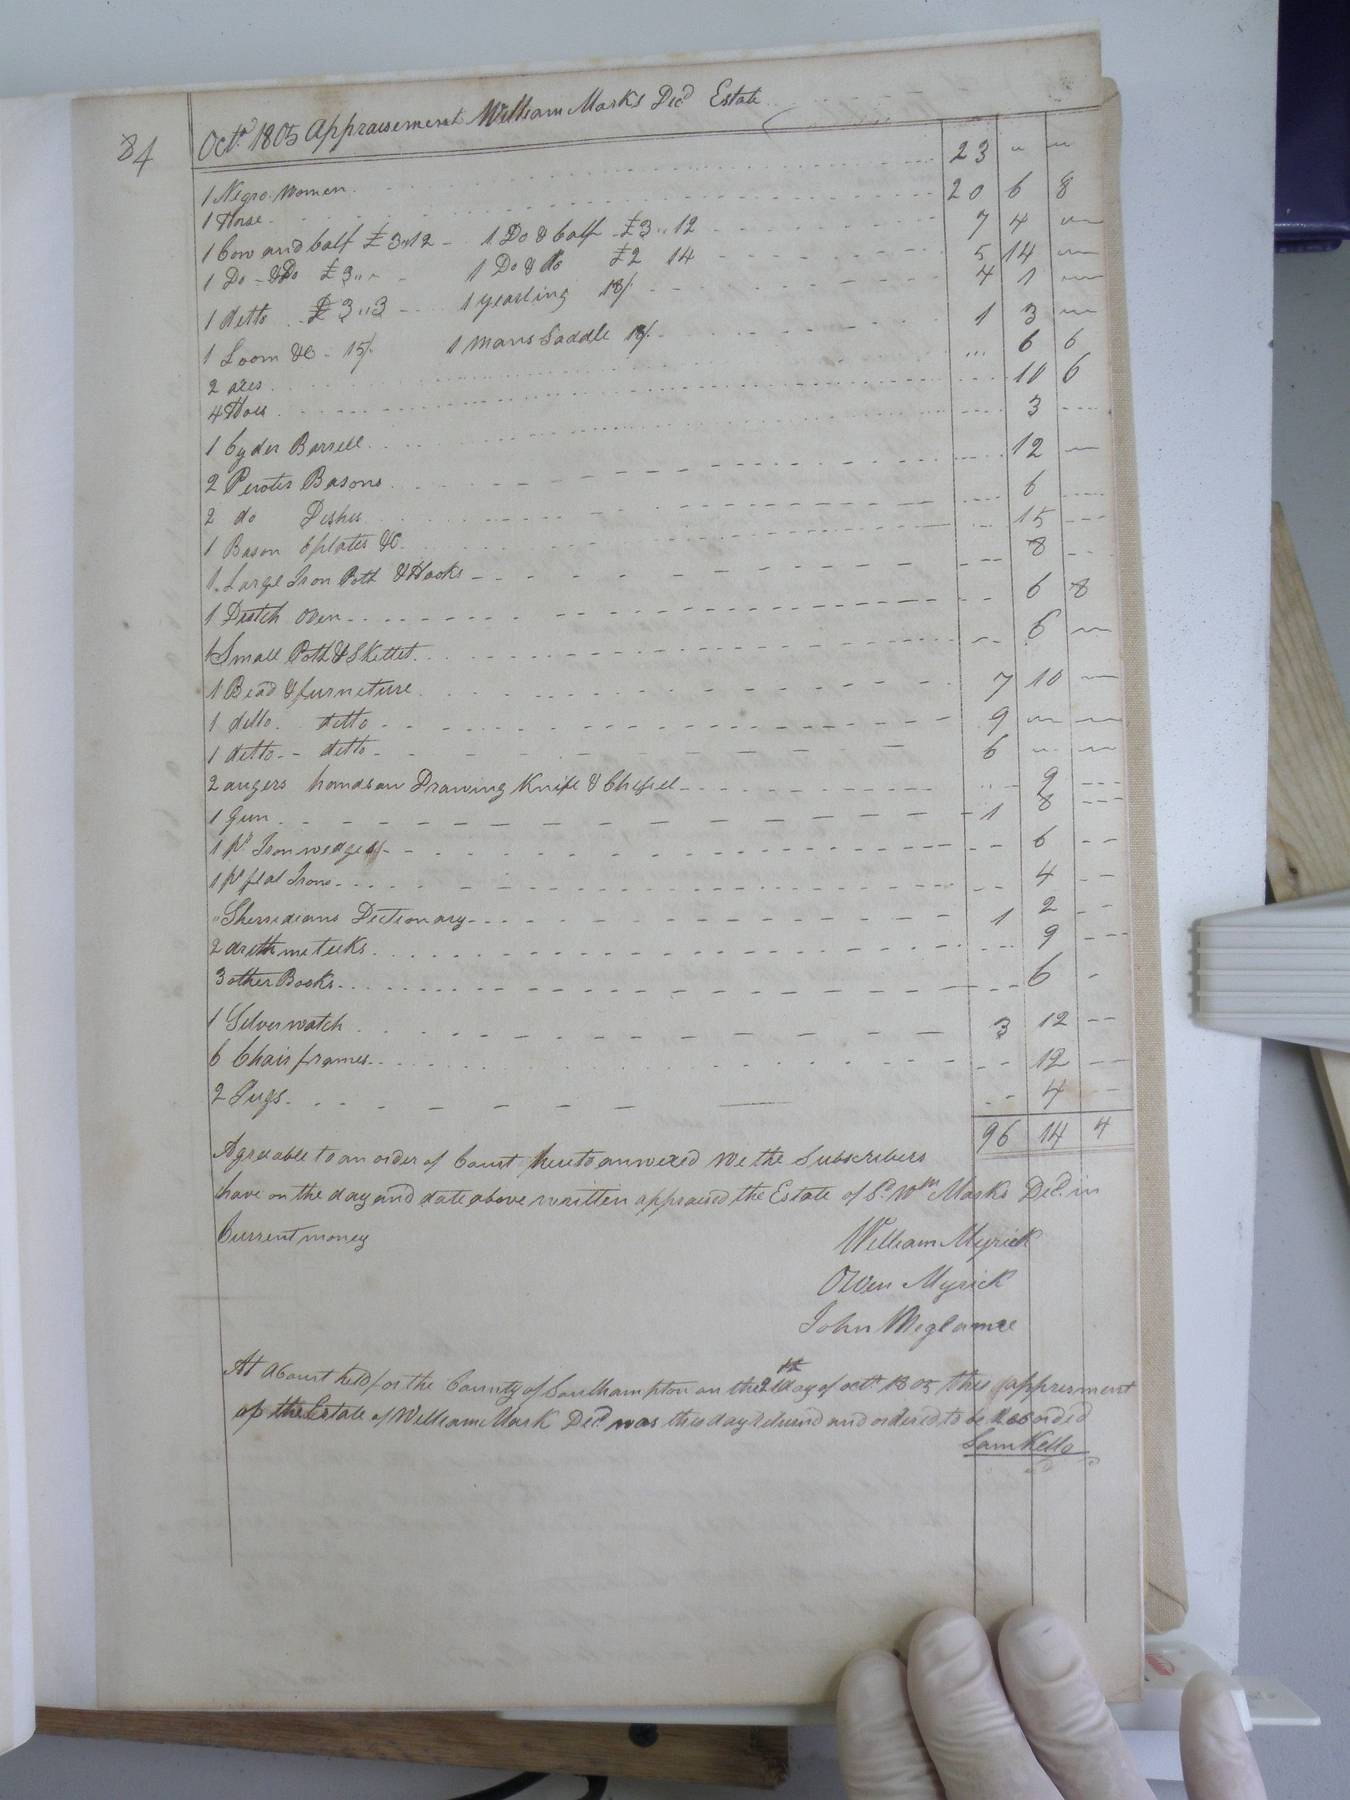 84
Oct.r 1805 Appraisement William Marks Dec.d Estate
1 Negro Women 23 " "
1 Horse 20 6 8
1 Cow and Calf £3"12 1 Do & Calf £3"12 7 4 "
1 Do & Do £3"" 1 Do & Do £2 14 5 14 "
1 ditto £3"3 1 yearling 18/ 4 1 "
1 Loom &c 15/ 1 Mans Saddle 18/ 1 3 "
2 axes 6 6
4 Hoes 10 6
1 Cyder Barrell 3
2 Pewter Basons 12
2 do Dishes 6
1 Bason 6 plates &c 15
1 Large Iron Pott & Hooks 8
1 Dutch oven 6 8
1 Small Pott & Skettet 6 "
1 Bead & furneture 7 10 "
1 ditto ditto 9 " "
1 ditto ditto 6 " "
2 augers handsaw Drawing Knife & Chissel 9
1 Gun 1 8
1 Pr Iron wedges 6
1 Pr flat Irons 4
" Sherredians Dictionary 1 2
2 arithmeticks 9
3 other Books 6
1 Silver watch 3 12
6 Chair frames 12
2 Jugs 4
96 14 4
Agreeable to an order of Court hereto annexed We the Subscribers
have on the day and date above written appraised the Estate of S.d W.m Marks Dec.d in
Current money
William Myrick
Owen Myrick
John Meglamre
At a Court held for the County of Southampton on the 21th day of oct.r 1805 this apprisment
of the Estate of William Mark Dec.d was this day returned and ordered to be Recorded
Sam Kello